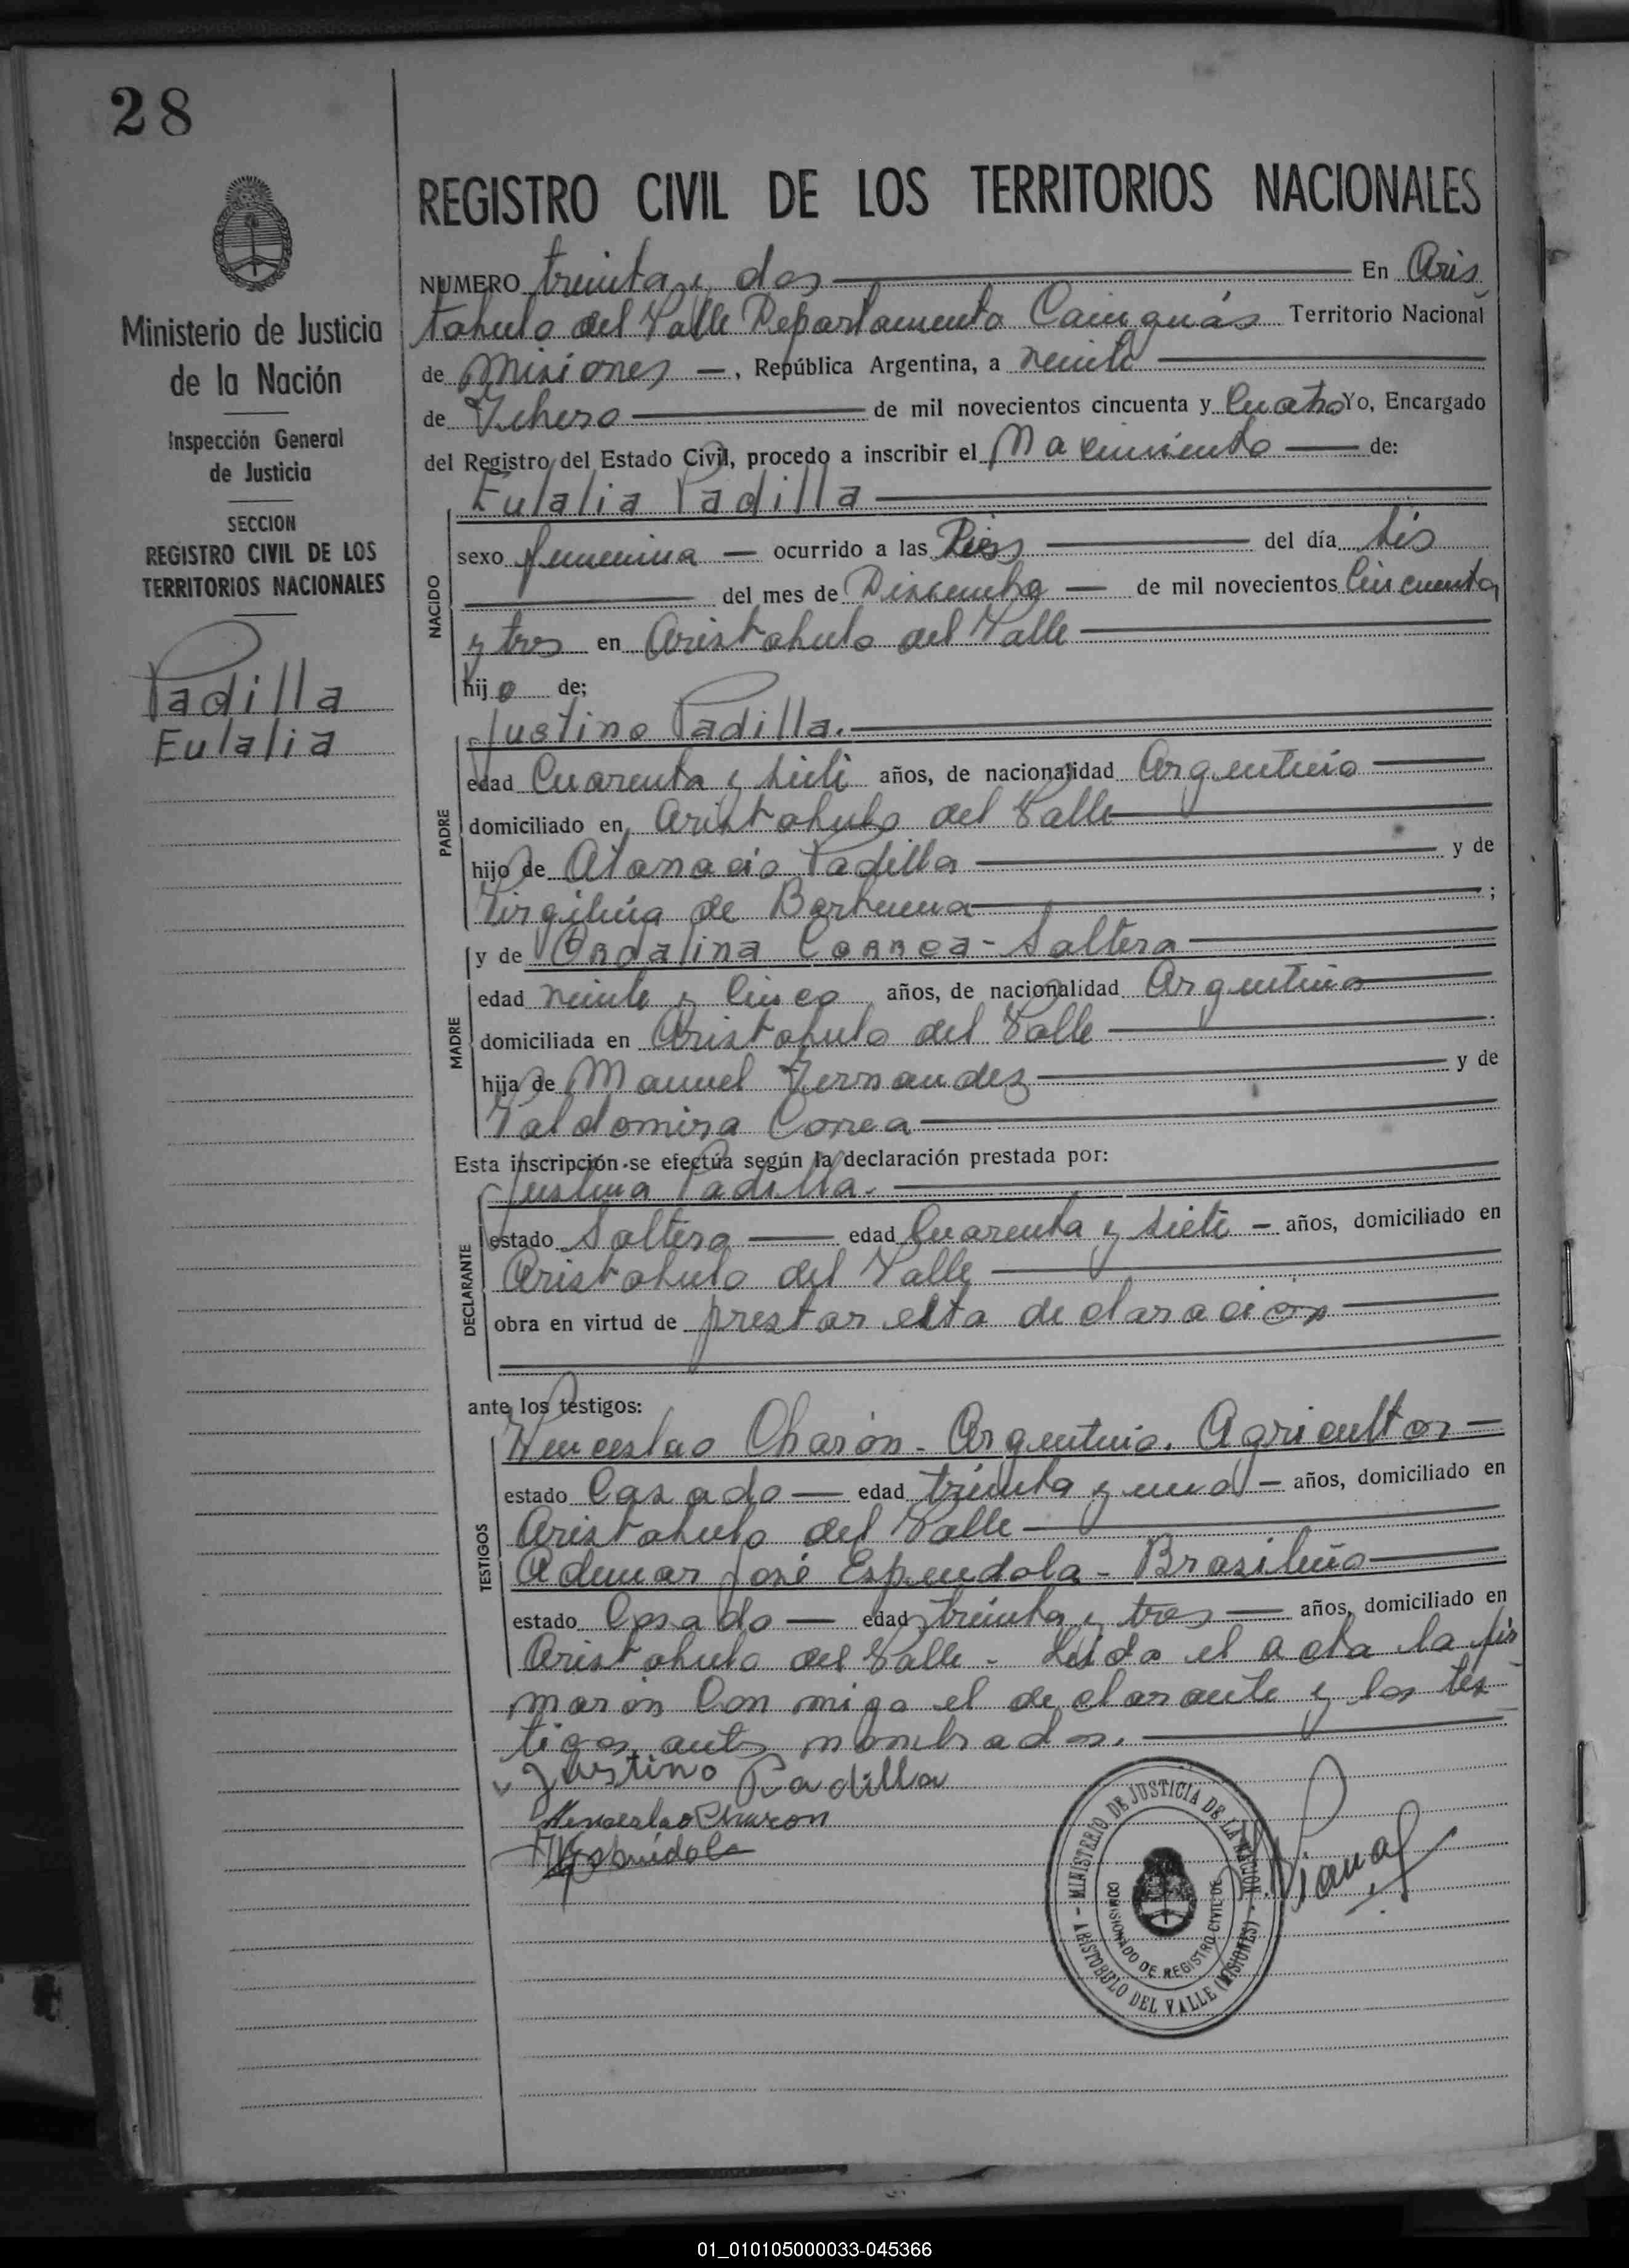 28
Ministerio de Justicia
de la Nación
Inspección General
de Justicia
SECCION
REGISTRO CIVIL DE LOS
TERRITORIOS NACIONALES
Padilla
Eulalia
REGISTRO CIVIL DE LOS TERRITORIOS NACIONALES
NUMERO treinta y dos En Aris
tobulo del Valle Departamento Cainguás Territorio Nacional
de Misiones —, República Argentina, a veinte
de Febrero de mil novecientos cincuenta y Cuatro Yo, Encargado
del Registro del Estado Civil, procedo a inscribir el Nacimiento de:
Eulalia Padilla
NACIDO
sexo femenina — ocurrido a las Diez del día seis
del mes de Diciembre — de mil novecientos Cincuenta
y tres en Aristobulo del Valle
hij o de;
PADRE
Justino Padilla.
edad Cuarenta y siete años, de nacionalidad Argentino
domiciliado en Aristobulo del Valle
hijo de Atanacio Padilla y de
Virgilina de Barbuena ;
MADRE
y de Ordalina Correa - Soltera
edad veinte y Cinco años, de nacionalidad Argentina
domiciliada en Aristobulo del Valle
hija de Manuel Fernandez y de
Valdomira Correa
Esta inscripción se efectúa según la declaración prestada por:
DECLARANTE
Justino Padilla.
estado Soltero — edad Cuarenta y siete — años, domiciliado en
Aristobulo del Valle
obra en virtud de prestar esta declaración
ante los testigos:
TESTIGOS
Wenceslao Charón - Argentino. Agricultor —
estado Casado — edad treinta y uno — años, domiciliado en
Aristobulo del Valle
Ademar José Espendola - Brasileño
estado Casado — edad treinta y tres — años, domiciliado en
Aristobulo del Valle - Leida el acta la fir
maron Conmigo el declarante y los tes
tigos antes nombrados.
Justino Padilla
Wenceslao Charon
MINISTERIO DE JUSTICIA DE LA NACION
COMISIONADO DE REGISTRO CIVIL DE
ARISTOBULO DEL VALLE (MISIONES)
01_010105000033-045366